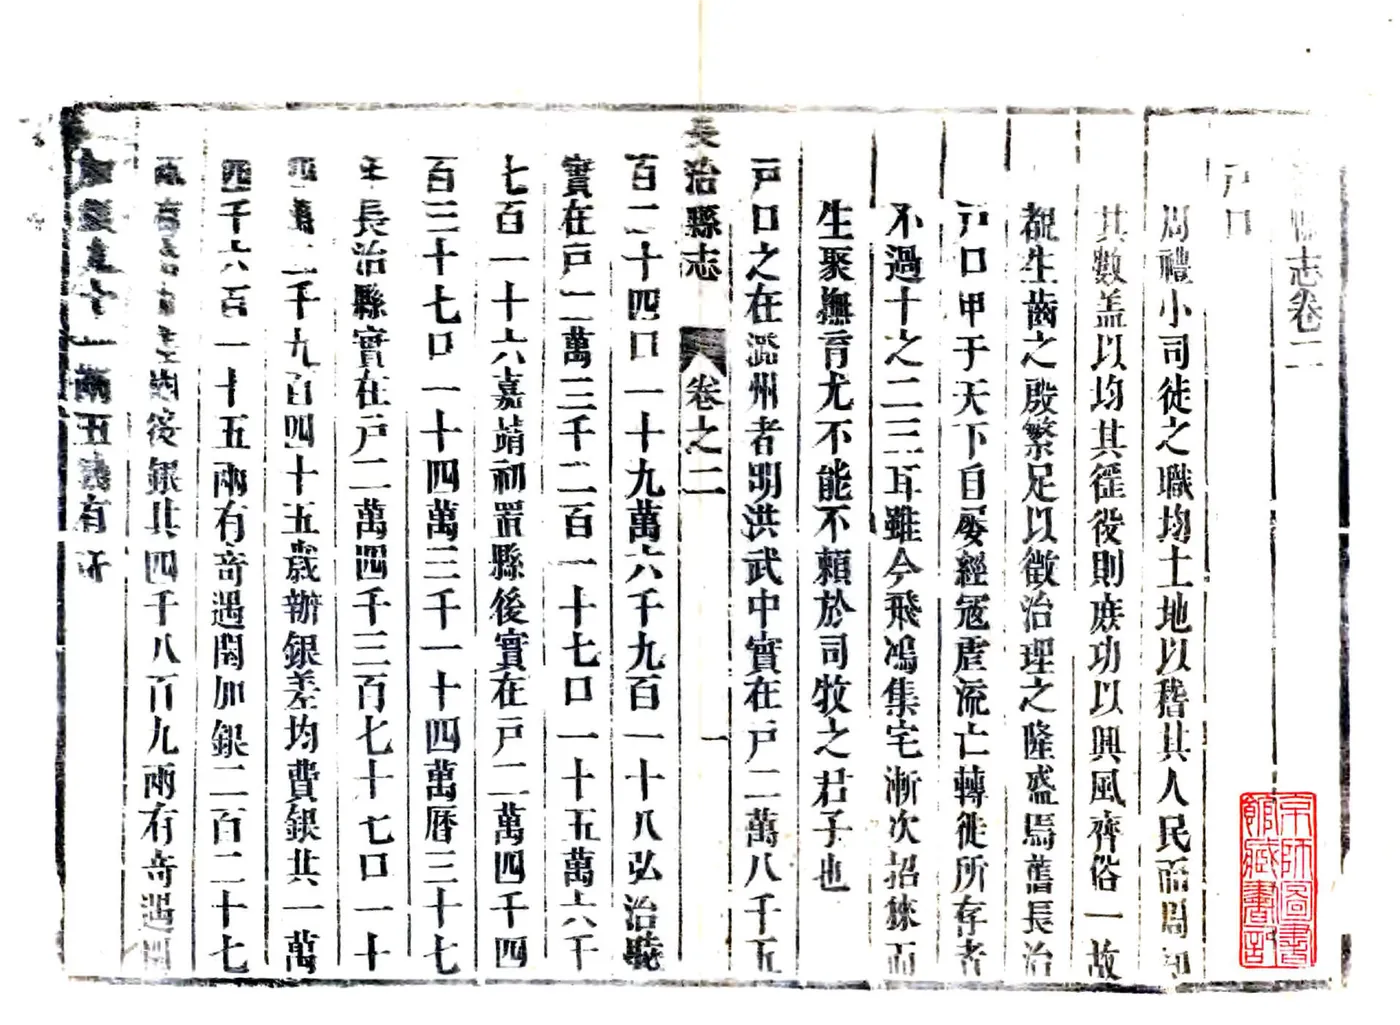 縣志卷二
戶口
周禮小司徒之職均土地以稽其人民而周知
其數盖以均其徭役則庻功以興風齊俗一故
覩生齒之殷繁足以徵治理之隆盛焉舊長治
戸口甲于天下自屡經冦虐流亡轉徙所存者
不過十之二三耳雖今飛鴻集宅漸次招徠而
生聚撫育尤不能不賴於司牧之君子也
戸口之在潞州者明洪武中實在戸二萬八千五
長治縣志
卷之二
一
百二十四口一十九萬六千九百一十八弘治
實在戸二萬三千二百一十七口一十五萬六千
七百一十六嘉靖初置縣後實在戸二萬四千四
百三十七口一十四萬三千一十四萬暦三十七
年長治縣實在戸二萬四千三百七十七口一十
四萬二千九百四十五歲辦銀差均費銀共一萬
四千六百一十五兩有奇遇閏加銀二百二十七
兩有奇後銀共四千八百九兩有奇遇閏
十一兩五錢有奇
京師圖書館藏書記